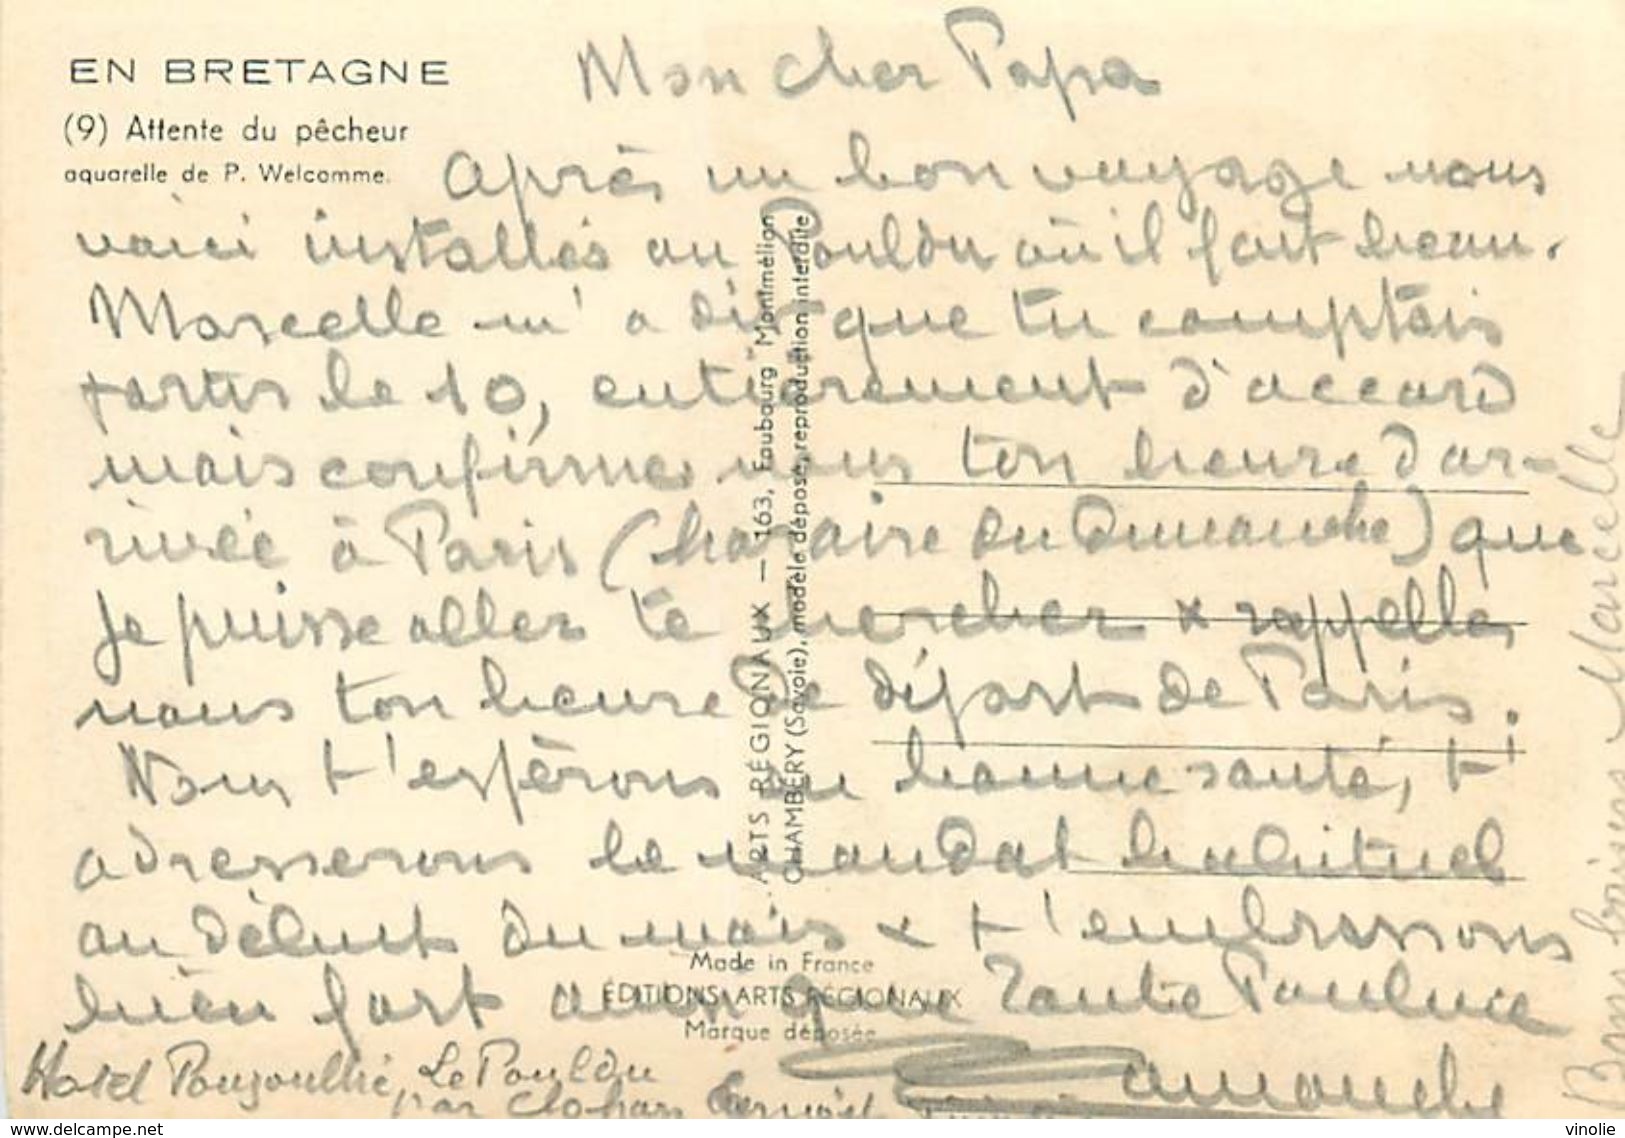 EN BRETAGNE
(9) Attente du pêcheur
aquarelle de P. Welcomme.
Mon cher Papa
Après un bon voyage nous
voici installés au Pouldu où il fait beau.
Marcelle m'a dit que tu comptais
partir le 10, entièrement d'accord
mais confirmes nous ton heure d'ar-
rivée à Paris (horaire du Dimanche) que
je puisse aller te chercher & rappelles
nous ton heure de départ de Paris.
Nous t'espérons en bonne santé, t'
adresserons le mandat habituel
au début du mois & t'embrassons
bien fort ainsi que Tante Pauline
Hotel Le Pouldu
par Clohars
Bons baisers Marcelle
ARTS RÉGIONAUX — 163, Faubourg Montmélian
CHAMBÉRY (Savoie), modèle déposé, reproduction interdite
Made in France
ÉDITIONS ARTS RÉGIONAUX
Marque déposée
www.delcampe.net
vinolie